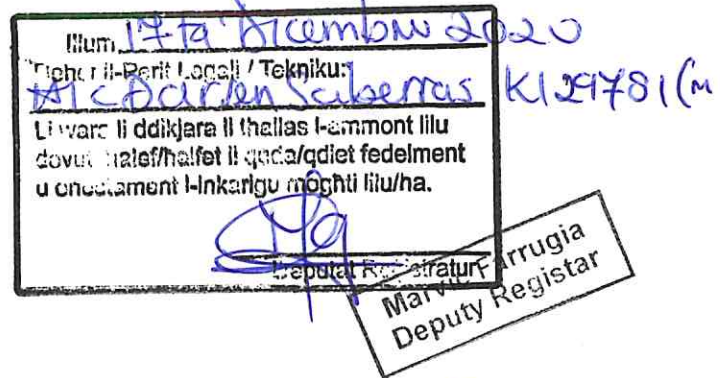 Illum 17 ta' Dicembru 2020
Deher il-Perit Legali / Tekniku:
AIC Darren Sciberras KI 29781 (M
Li wara li ddikjara li thallas l-ammont lilu
dovut halef/halfet li qeda/qdiet fedelment
u onestament l-inkarigu moghti lilu/ha.
Deputat Registratur
Marvic Farrugia
Deputy Registar